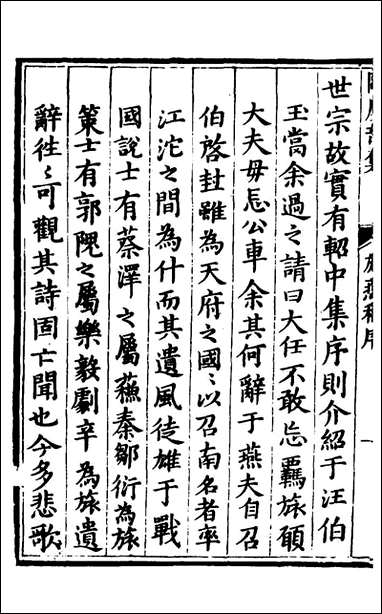 世宗故實有軺中集序則介紹于汪伯
玉當余過之請曰大任不敢忘羈旅頋
大夫毋忘公車余其何辭于燕夫自召
伯啓封雖為天府之國〻以召南名者率
江沱之間為什而其遺風徒雄于戰
國說士有蔡澤之屬蘓秦鄒衍為旅
策士有郭隗之屬樂毅劇辛為旅遺
辭徃〻可觀其詩固亡聞也今多悲歌